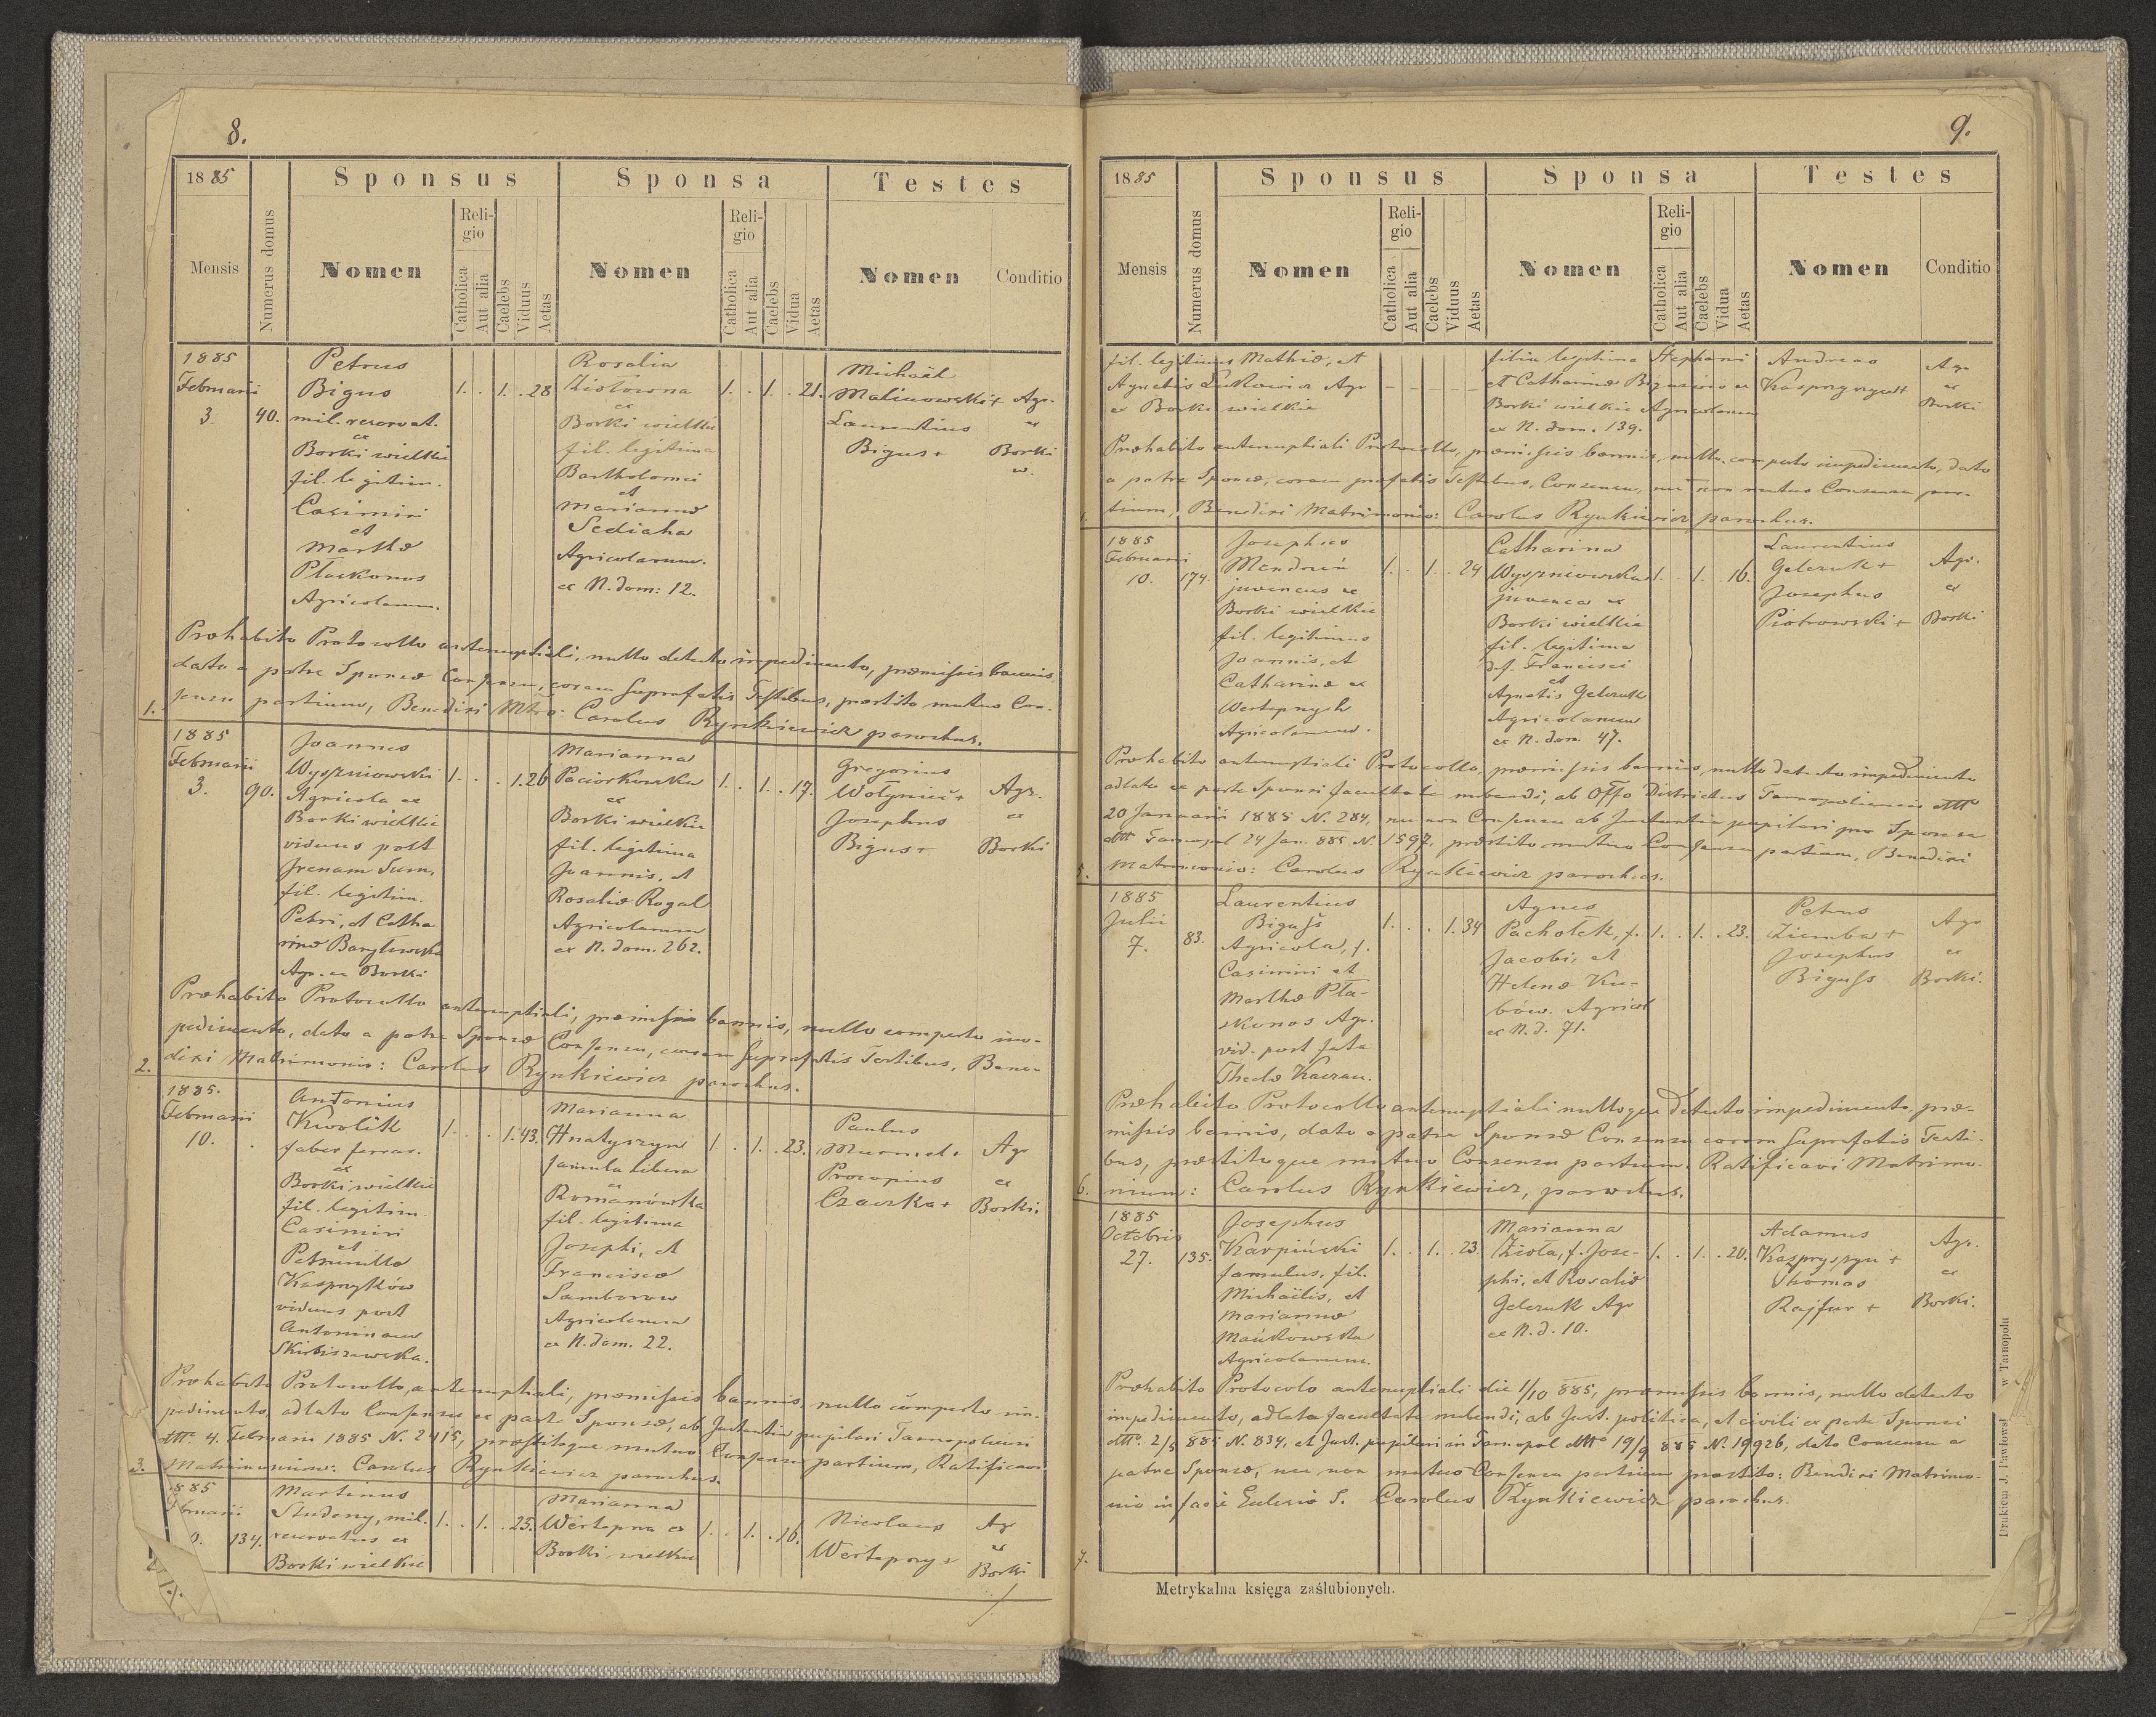 8.
18 85
Sponsus
Sponsa
Testes
Mensis
Numerus domus
Nomen
Religio
Catholica
Aut alia
Caelebs
Viduus
Aetas
Nomen
Religio
Catholica
Aut alia
Caelebs
Vidua
Aetas
Nomen
Conditio
1885
Februarii
3.
40.
Petrus
Bigus
mil. reservat.
ex
Borki wielkie
fil. legitim.
Casimiri
et
Marthæ
Płaskonos
Agricolarum.
1. . 1. . 28
Rosalia
Ziołówna
ex
Borki wielkie
fil. legitima
Bartholomei
et
Mariannæ
Sediaha
Agricolarum.
ex N. dom: 12.
1. . 1. . 21.
Michaël
Malinowski +
Laurentius
Bigus +
Agr.
ex
Borki
w.
Præhabito Protocollo antenuptiali, nullo detecto impedimento, præmissis bannis,
dato a patre Sponsæ Consensu, coram suprafatis Testibus, præstito mutuo Con-
sensu partium, Benedixi Mtrio: Carolus Rynkiewicz parochus.
1.
1885
Februarii
3.
90.
Joannes
Wyszniowski
Agricola ex
Borki wielkie
viduus post
Irenam Sum,
fil. legitim.
Petri, et Catha
rinæ Barylewska
Agr. ex Borki
1. . . 1. 26
Marianna
Paciorkowska
ex
Borki wielkie
fil. legitima
Joannis, et
Rosaliæ Rogal
Agricolarum
ex N. dom. 262.
1. . 1. . 17.
Gregorius
Wołyniec +
Josephus
Bigus +
Agr.
ex
Borki
Præhabito Protocollo antenuptiali, præmissis bannis, nullo comperto im-
pedimento, dato a patre Sponsæ Consensu, coram suprafatis Testibus, Bene-
dixi Matrimonio: Carolus Rynkiewicz parochus.
2.
1885.
Februarii
10.
Antonius
Kwolik
faber ferrar.
ex
Borki wielkie
fil. legitim.
Casimiri
et
Petrunillæ
Kasprzyków
viduus post
Antoninam
Skirbiszewska.
1. . . 1. 43.
Marianna
Hnatyszyn
famula libera
ex
Romanówka
fil. legitima
Josephi, et
Franciscæ
Samborow
Agricolarum
ex N. dom. 22.
1. . 1. . 23.
Paulus
Murmel +
Procopius
Czaczka +
Agr
ex
Borki.
Præhabito Protocollo, antenuptiali, præmissis bannis, nullo comperto im-
pedimento, adlato Consensu ex parte Sponsæ, ab Instantia pupilari Tarnopoliensi
dtto 4. Februarii 1885 N. 2415, præstitoque mutuo Consensu partium, Ratificavi
Matrimonium: Carolus Rynkiewicz parochus.
3.
885
bruarii
0.
134.
Martinus
Studeny, mil.
reservatus ex
Borki wielkie
1. . 1. . 25.
Marianna
Wertepna ex
Borki wielkie
1. . 1. . 16.
Nicolaus
Wertepny +
Ag
ex
Borki
9.
18 85
Sponsus
Sponsa
Testes
Mensis
Numerus domus
Nomen
Religio
Catholica
Aut alia
Caelebs
Viduus
Aetas
Nomen
Religio
Catholica
Aut alia
Caelebs
Vidua
Aetas
Nomen
Conditio
fil. legitimus Mathiæ, et
Agnetis Łukowicz Agr
ex Borki wielkie
filia legitima Stephani
et Catharinæ
Borki wielkie Agricolarum
ex N. dom. 139.
Andreas
Agr
ex
Borki
Præhabito antenuptiali Protocollo, præmissis bannis, nullo comperto impedimento, dato
a patre Sponsæ, coram præfatis Testibus, Consensu, nec non mutuo Consensu par-
tium, Benedixi Matrimonio: Carolus Rynkiewicz parochus.
4.
1885
Februarii
10.
174.
Josephus
Mendruń
juvencus ex
Borki wielkie
fil. legitimus
Joannis, et
Catharinæ ex
Wertepnych
Agricolarum.
1. . 1. . 24
Catharina
Wyszniowska
juvenca ex
Borki wielkie
fil. legitima
def. Francisci
et
Agnetis Gelczuk
Agricolarum
ex N. dom. 47.
1. . 1. . 16.
Laurentius
Gelczuk +
Josephus
Piotrowski +
Agr.
ex
Borki
Præhabito antenuptiali Protocollo, præmissis bannis, nullo detecto impedimento
adlata ex parte Sponsi facultate nubendi, ab Offo Districtus Tarnopoliensis dtto
20 Januarii 1885 N. 284, nec non Consensu ab Instantia pupilari pro Sponsa
dtto Tarnopol 24 Jan. 885 N. 1597, præstito mutuo Consensu partium, Benedixi
Matrimonio: Carolus Rynkiewicz parochus.
5.
1885
Julii
7.
83.
Laurentius
Biguss
Agricola, f.
Casimiri et
Marthæ Pła-
skonos Agr.
vid. post fata
Theclæ Kaczan.
1. . . 1. 34
Agnes
Pachołek, f.
Jacobi, et
Helenæ Ku-
bów. Agricol
ex N. d. 71.
1. . 1. . 23.
Petrus
Ziemba +
Josephus
Biguss
Agr
ex
Borki.
Præhabito Protocollo antenuptiali nulloque detecto impedimento, præ-
missis bannis, dato a patre Sponsæ Consensu coram suprafatis Testi-
bus, præstitoque mutuo Consensu partium. Ratificavi Matrimo-
nium: Carolus Rynkiewicz, parochus.
6.
1885
Octobris
27.
135.
Josephus
Karpiński
famulus, fil.
Michaëlis, et
Mariannæ
Mańkowska
Agricolarum.
1. . 1. . 23.
Marianna
Zioła, f. Jose-
phi, et Rosaliæ
Gelczuk Agr
ex N. d. 10.
1. . 1. . 20.
Adamus
Kaspryszyn +
Thomas
Rajfur +
Agr.
ex
Borki.
Præhabito Protocolo antenuptiali die 1/10 885, præmissis bannis, nullo detecto
impedimento, adlata facultate nubendi, ab Inst. politica, et civili ex parte Sponsi
dtto. 2/5 885 N. 834, et Inst. pupilari in Tarnopol dtto 19/9 885 N. 19926, dato Consensu a
patre Sponsæ, nec non mutuo Consensu partium præstito: Benedixi Matrimo-
nio in facie Eclesiæ S. Carolus Rynkiewicz parochus.
7.
Metrykalna księga zaślubionych.
Drukiem J. Pawłowski w Tarnopolu